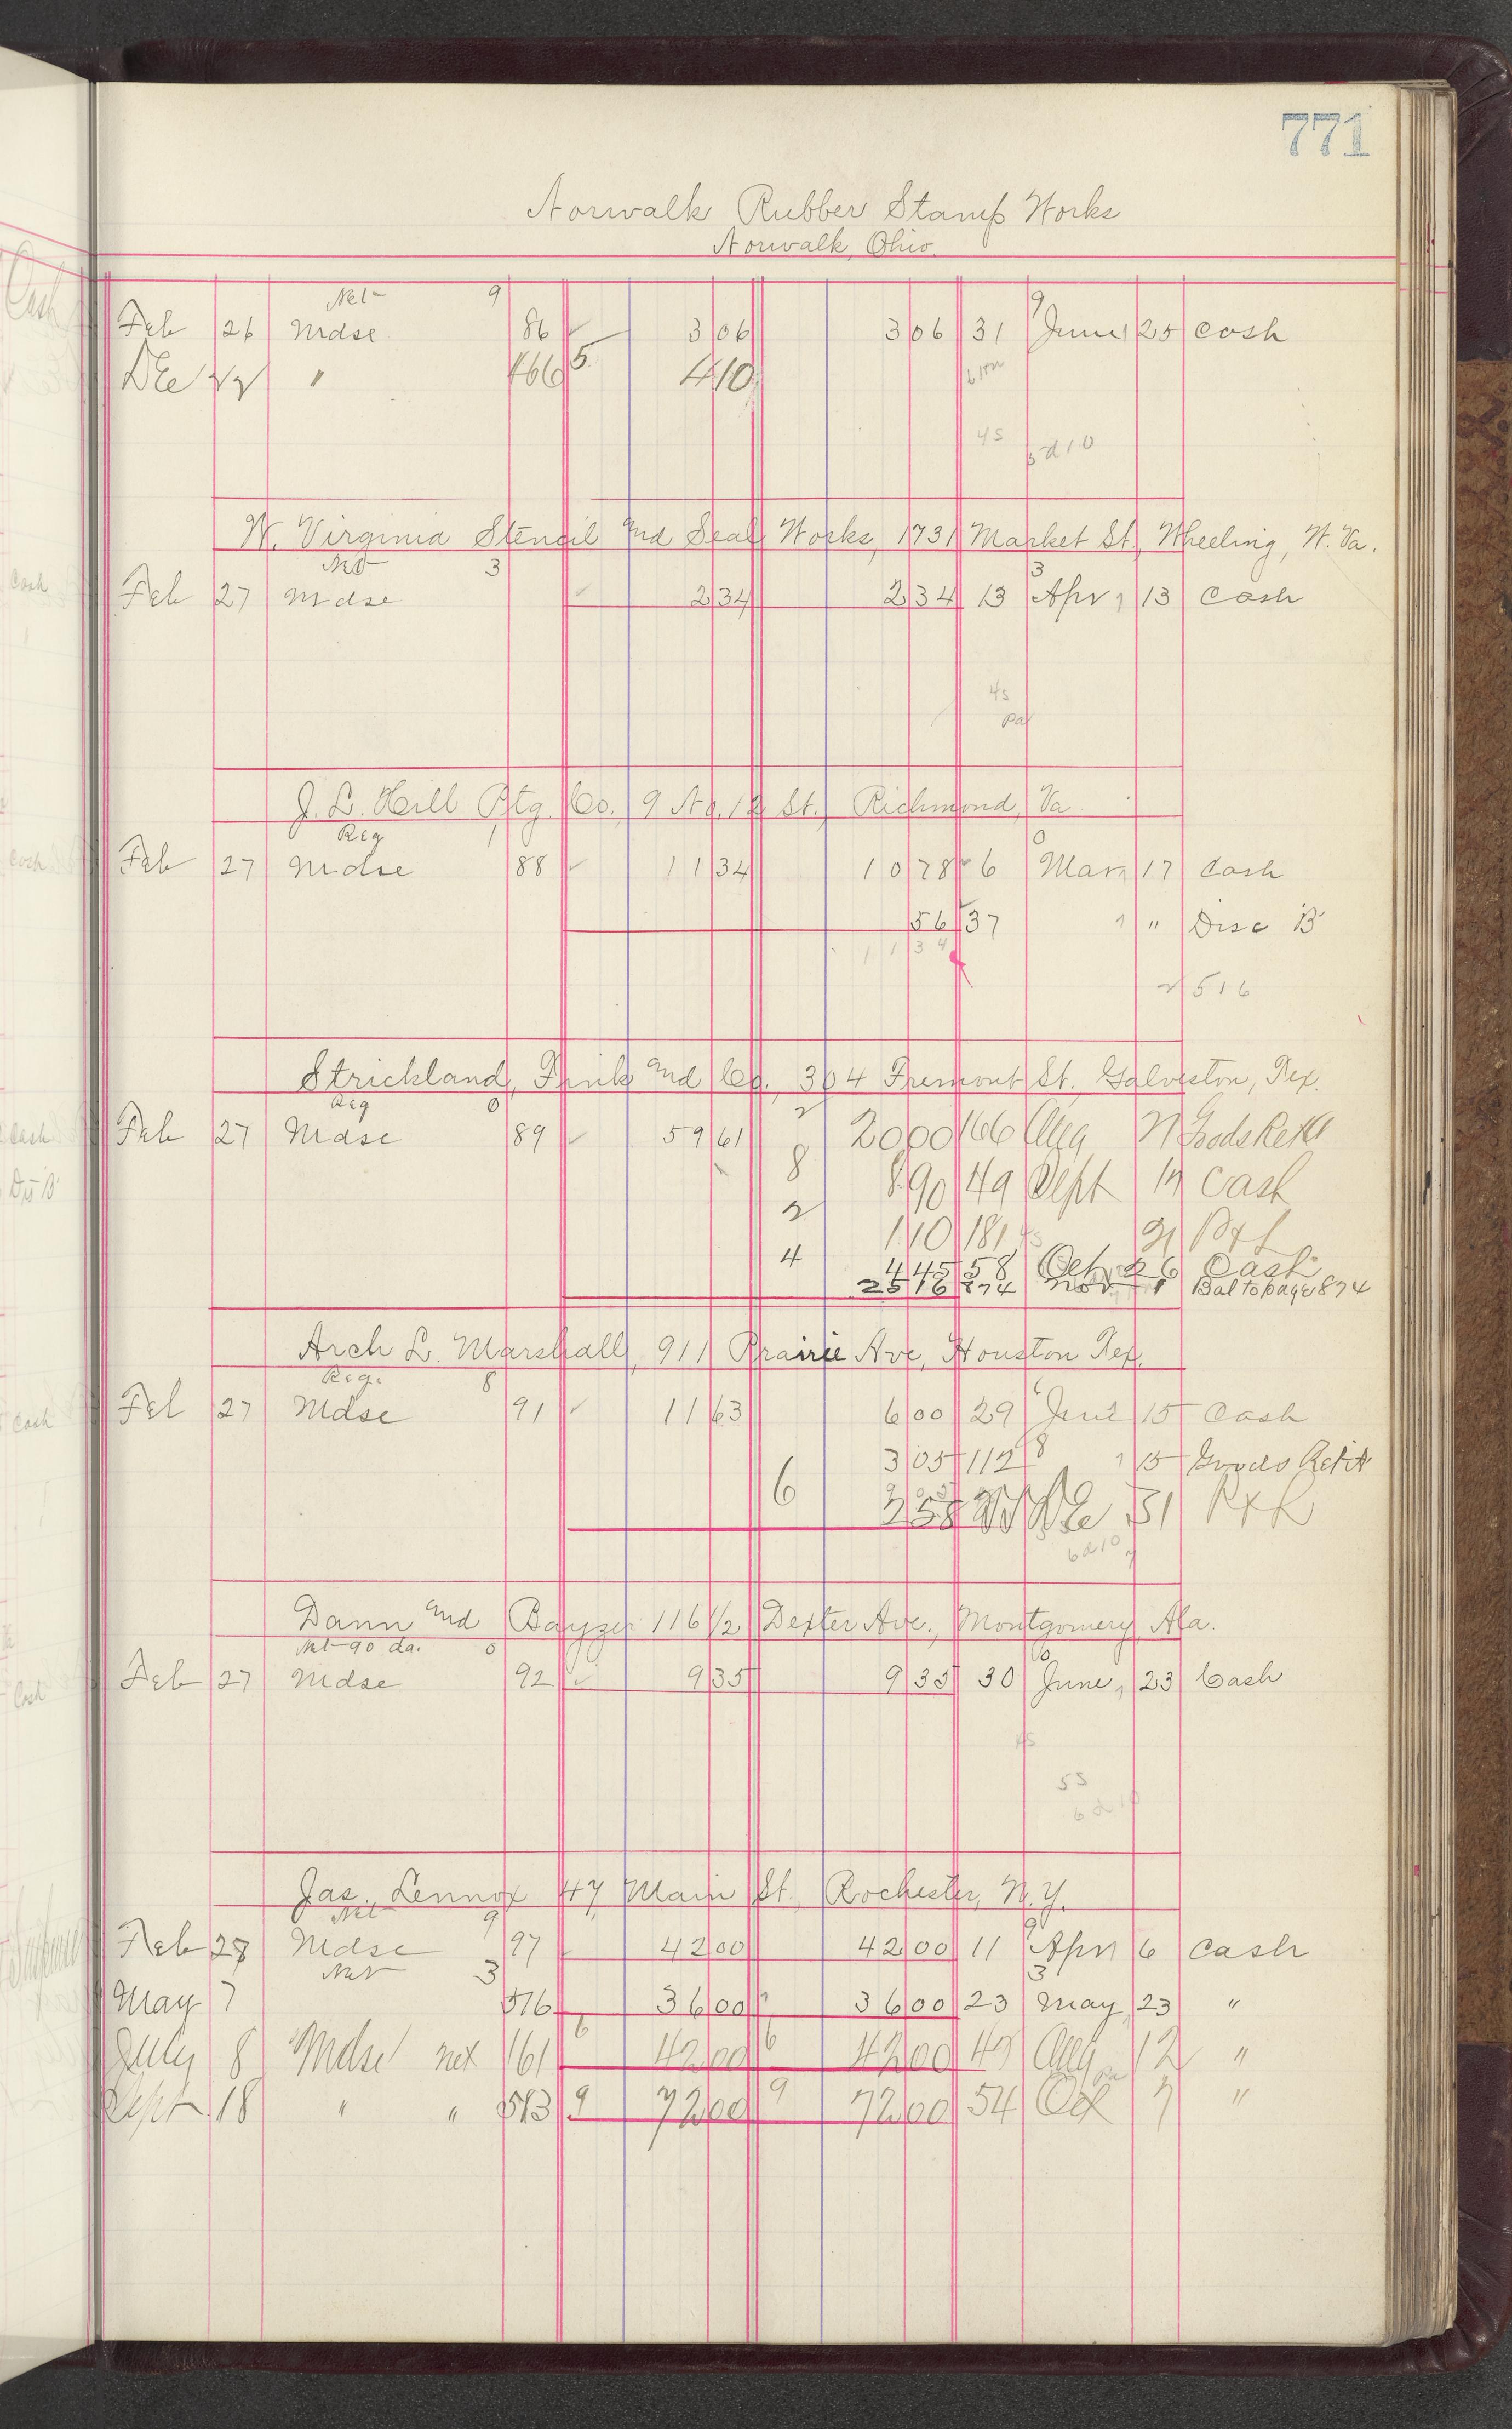 771
Norwalk Rubber Stamp Works
Norwalk, Ohio.
Net 9 9
Feb 26 Mdse 86 3 06 3 06 31 June 25 Cash
Dec " 466 5 4 10
45 6d10
W. Virginia Stencil and Seal Works, 1731 Market St., Wheeling, W. Va.
Net 3 3
Feb 27 Mdse 2 34 2 34 13 Apr 13 Cash
45
Pd
J. L. Hill Ptg. Co., 9 No. 12 St., Richmond, Va
Reg 1 0
Feb 27 Mdse 88 11 34 10 78 6 Mar 17 Cash
56 37 " Disc "B"
11 34
516
Strickland, and Co., 304 Fremont St. Galveston, Tex.
Reg 0 2
Feb 27 Mdse 89 59 61 20 00 166 Aug Goods Retd
8 8 90 49 Sept Cash
2 1 10 181 21 P & L
4 4 45 58 Oct 26 Cash
25 16 874 Nov 1 Bal to page 874
Arch L. Marshall, 911 Prairie Ave, Houston Tex.
Reg. 8 6
Feb 27 Mdse 91 11 63 6 00 29 June 15 Cash
3 05 112 8 15 Goods Retd
6 2 58 Dec 31 P & L
6d10
Dann and 116 1/2 Dexter Ave., Montgomery, Ala.
Net 90 da. 0 0
Feb 27 Mdse 92 9 35 9 35 30 June, 23 Cash
45
55
6d10
Jas. Lennox 47 Main St., Rochester, N.Y.
Net 9 9
Feb 28 Mdse 97 42 00 42 00 11 Apr 6 Cash
Net 3 3
May 7 576 36 00 36 00 23 May 23 "
July 8 Mdse net 161 6 42 00 6 42 00 Aug 12 "
Sept 18 " " 543 9 72 00 9 72 00 54 Oct 7 "